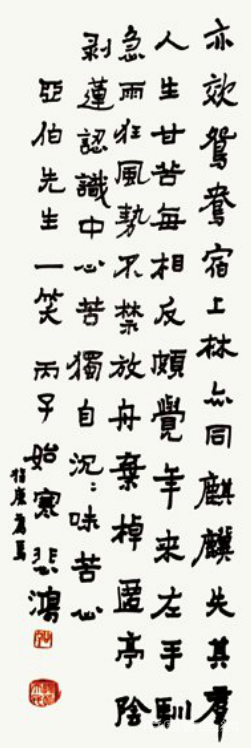 亦效鴛鴦宿上林亦同麒麟失其羣
人生甘苦每相反頗覺年來左手馴
急雨狂風勢不禁放舟棄棹匿亭陰
剥蓮認識中心苦獨自沉:味苦心
亞伯先生一笑 丙子始寒 悲鴻